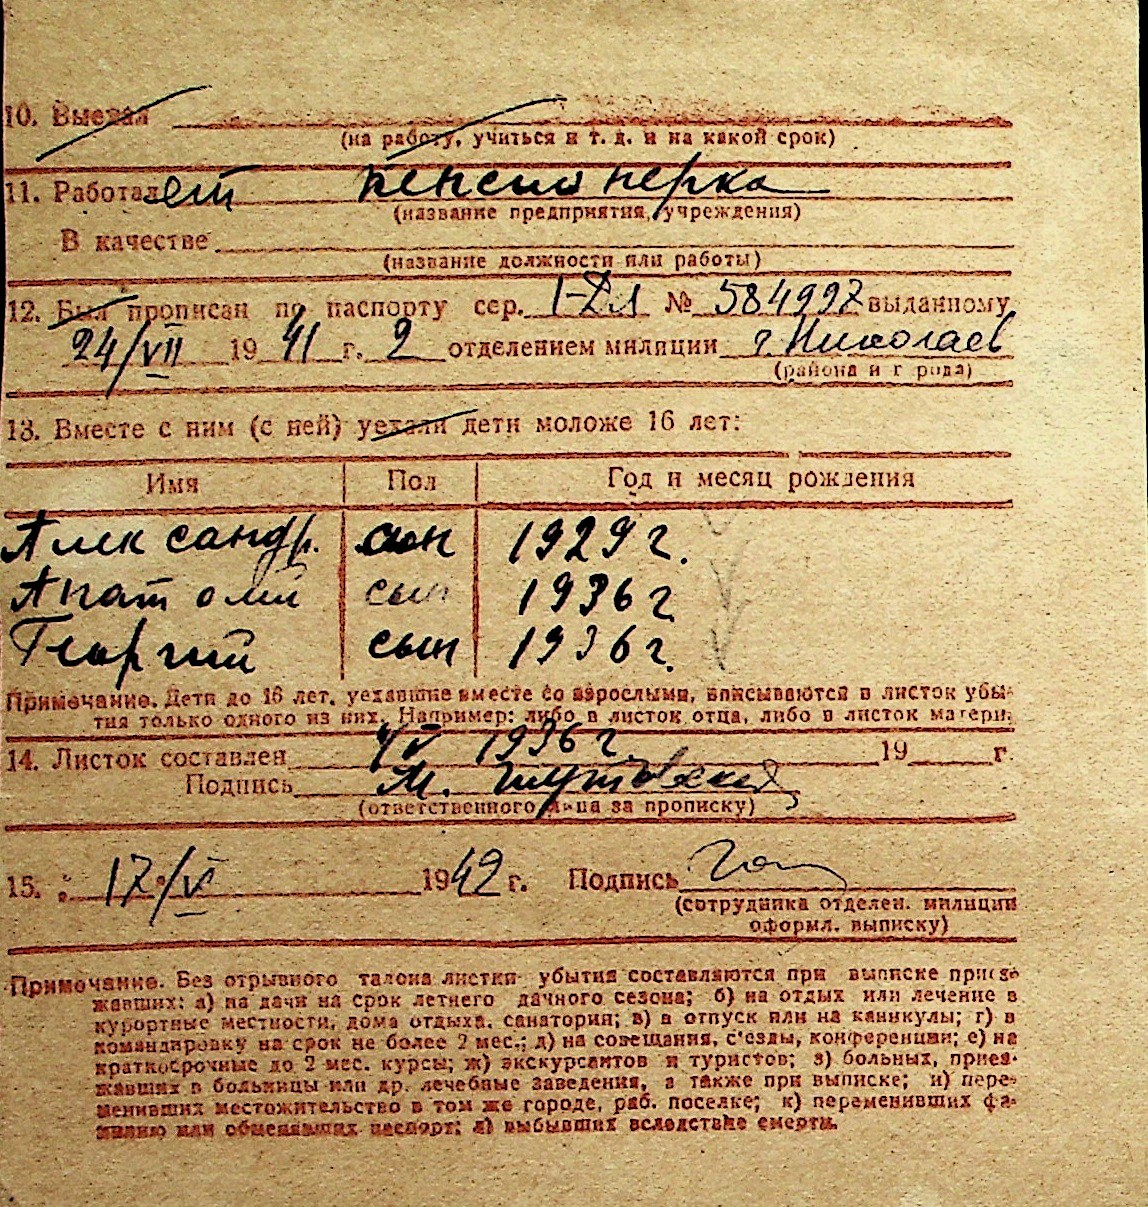 10. Выехал
(на работу, учиться и т. д. и на какой срок)
11. Работает пенсионерка
(название предприятия, учреждения)
В качестве
(название должности или работы)
12. Был прописан по паспорту сер. I-ДЛ № 584997 выданному
24/VII 1941 г. 2 отделением милиции г. Николаев
(района и г рода)
13. Вместе с ним (с ней) уехали дети моложе 16 лет:
Имя Пол Год и месяц рождения
Александр. сын 1929 г.
Анатолий сын 1936 г
Георгий сын 1936 г.
Примечание. Дети до 16 лет, уехавшие вместе со взрослыми, вписываются в листок убы-
тия только одного из них. Например: либо в листок отца, либо в листок матери.
14. Листок составлен 1936 г. 19 г.
Подпись М.
(ответственного лица за прописку)
15. „ 17/V 1942 г. Подпись
(сотрудника отделен. милиции
оформл. выписку)
Примечание. Без отрывного талона листки убытия составляются при выписке приез-
жавших: а) на дачи на срок летнего дачного сезона; б) на отдых или лечение в
курортные местности, дома отдыха, санатория; в) в отпуск или на каникулы; г) в
командировку на срок не более 2 мес.; д) на совещания, с'езды, конференции; е) на
краткосрочные до 2 мес. курсы; ж) экскурсантов и туристов; з) больных, приез-
жавших в больницы или др. лечебные заведения, а также при выписке; и) пере-
менивших местожительство в том же городе, раб. поселке; к) переменивших фа-
милию или обменявших паспорт; л) выбывших вследствие смерти.